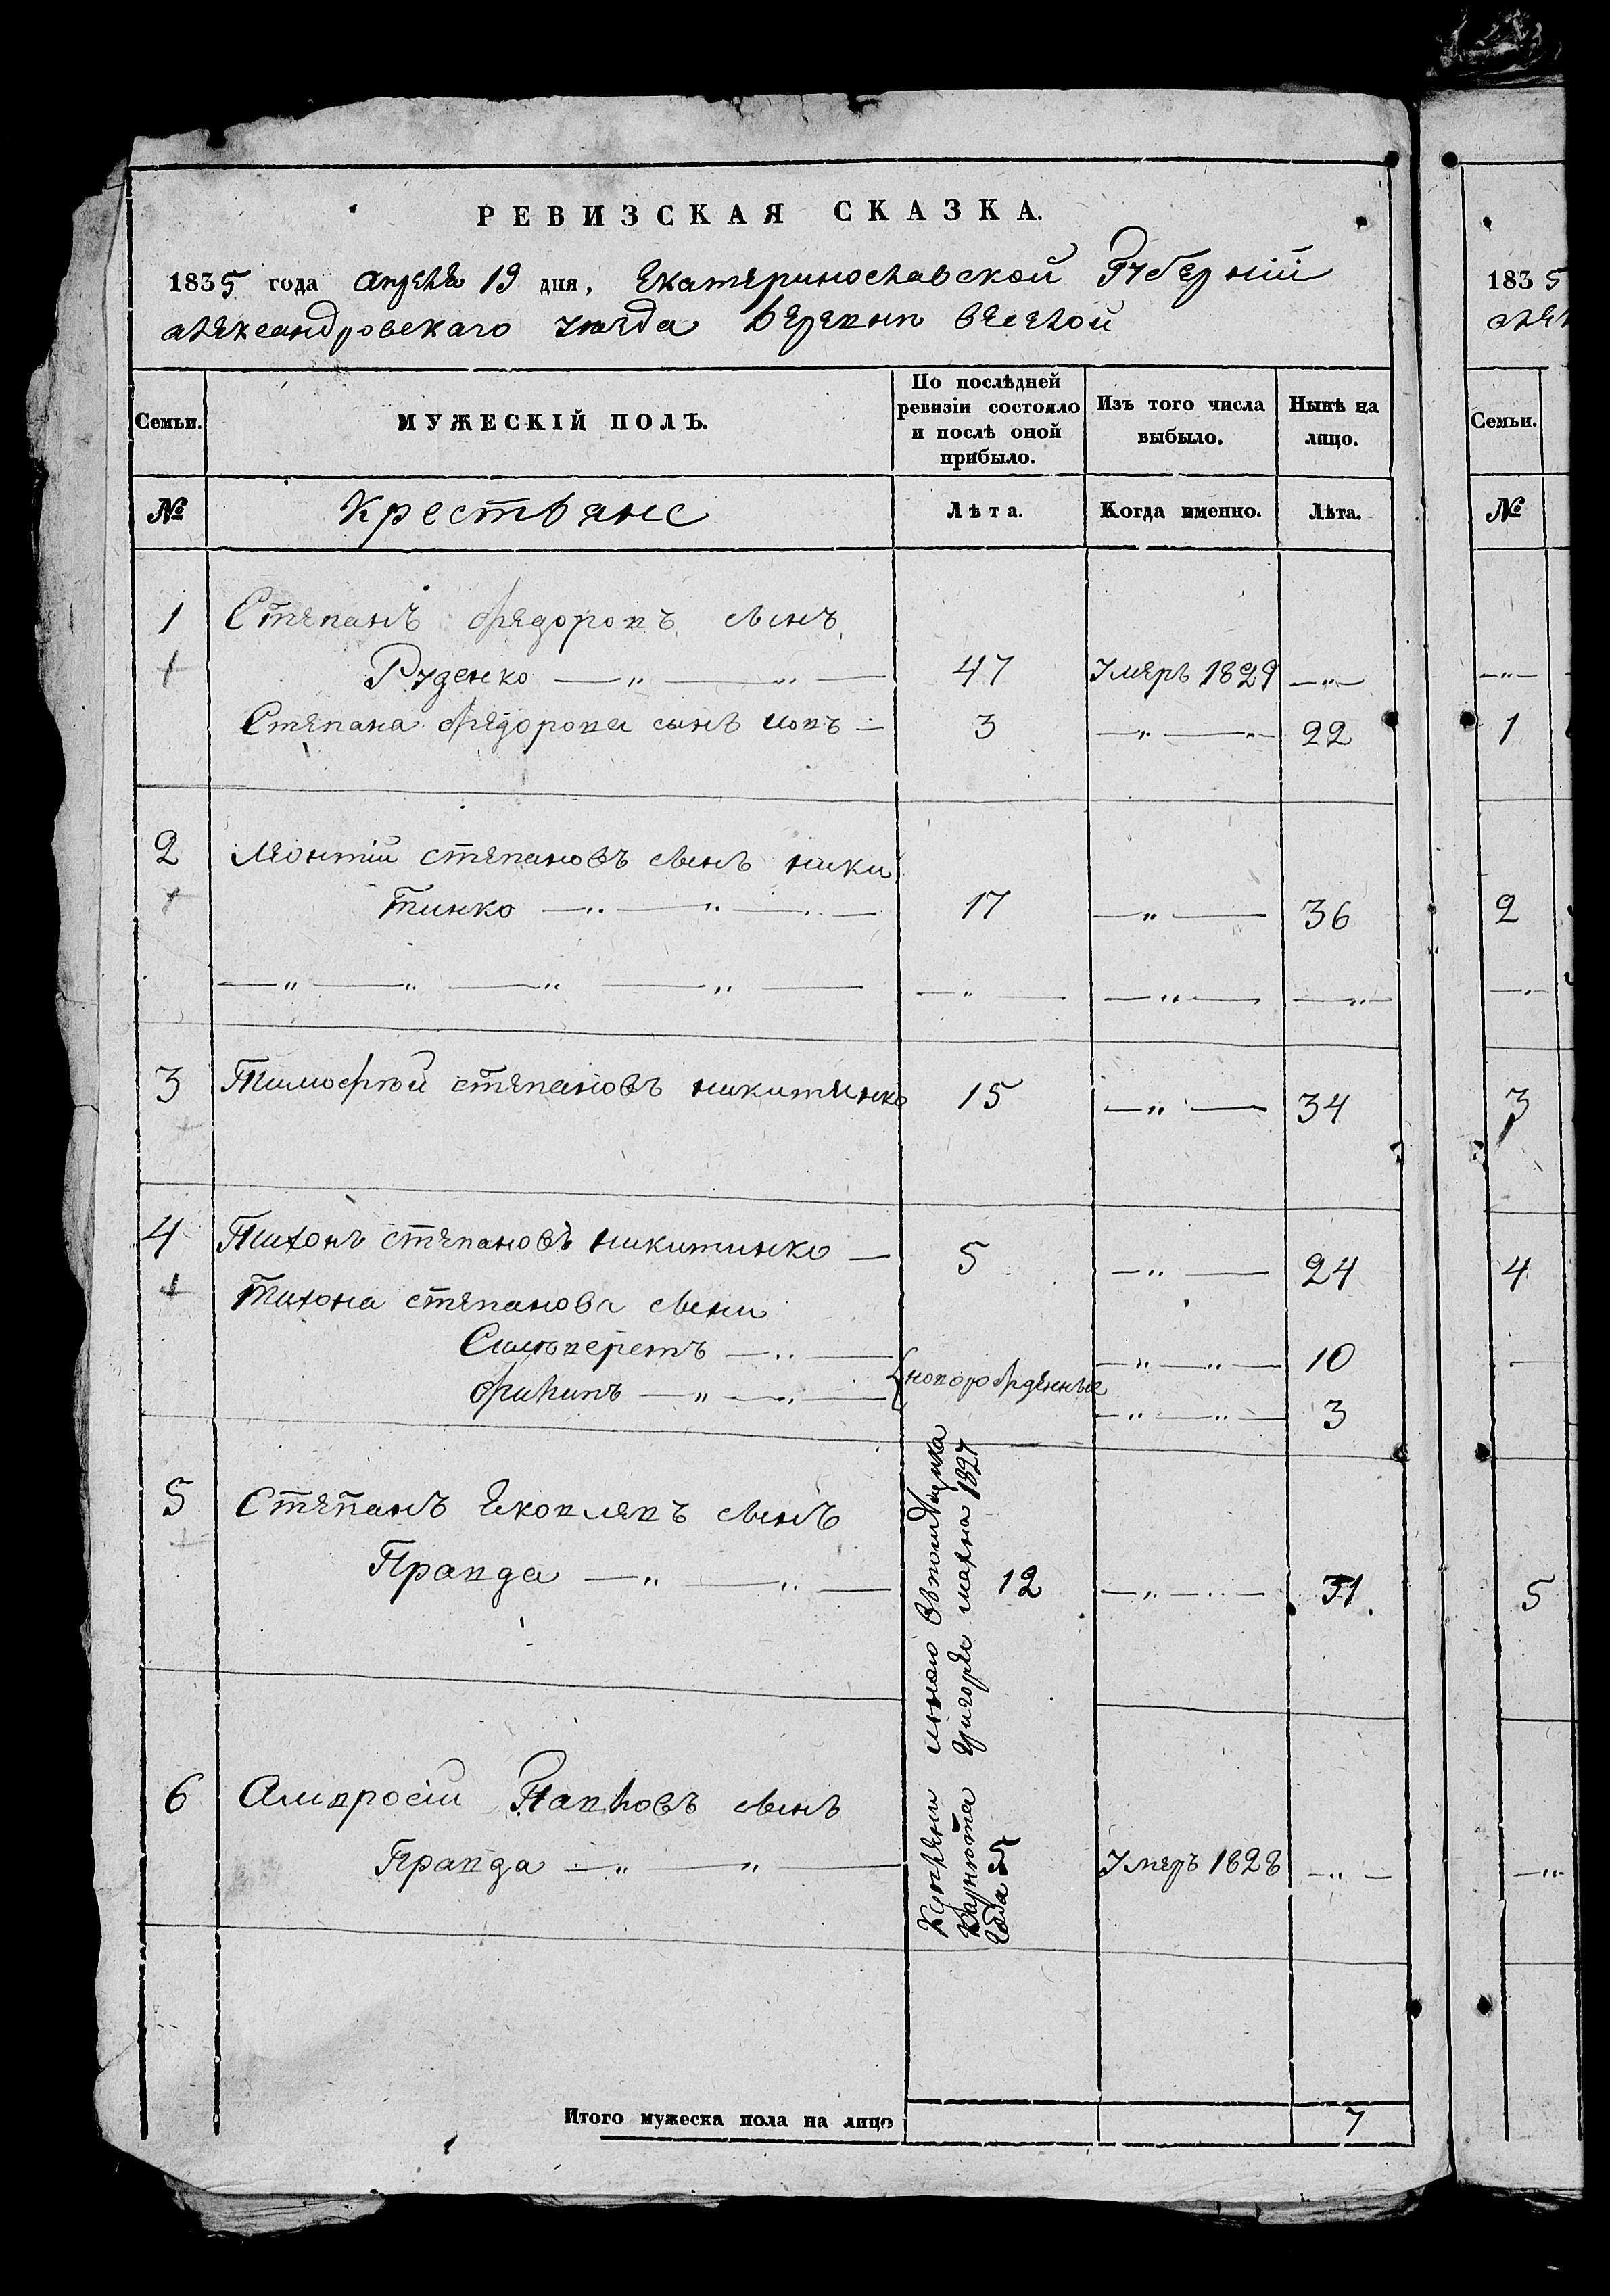 РЕВИЗСКАЯ СКАЗКА.
1835 года апреля 19 дня, Екатеринославской Губерніи
александровскаго уѣзда деревни веселой
Семьи.
МУЖЕСКІЙ ПОЛЪ.
По послѣдней ревизіи состояло и послѣ оной прибыло.
Изъ того числа выбыло.
Нынѣ на лицо.
№
Крестьяне
Лѣта.
Когда именно.
Лѣта.
1 Степанъ федоровъ сынъ
Руденко 47 Умеръ 1829
Степана федорова сынъ 3 22
2 Леонтій степановъ сынъ ники
тинко 17 36
3 Тимофѣй степановъ никитинко 15 34
4 Тихонъ степановъ никитинко 5 24
Тихона степанова сыни
10
филипъ новорожденные 3
5 Степанъ сынъ
Правда 12 31
6 Амвросій Павловъ сынъ
Правда Умеръ 1828
мною
григорія махна 1827
года
Итого мужеска пола на лицо 7
1835
Семьи.
№
1
2
3
4
5